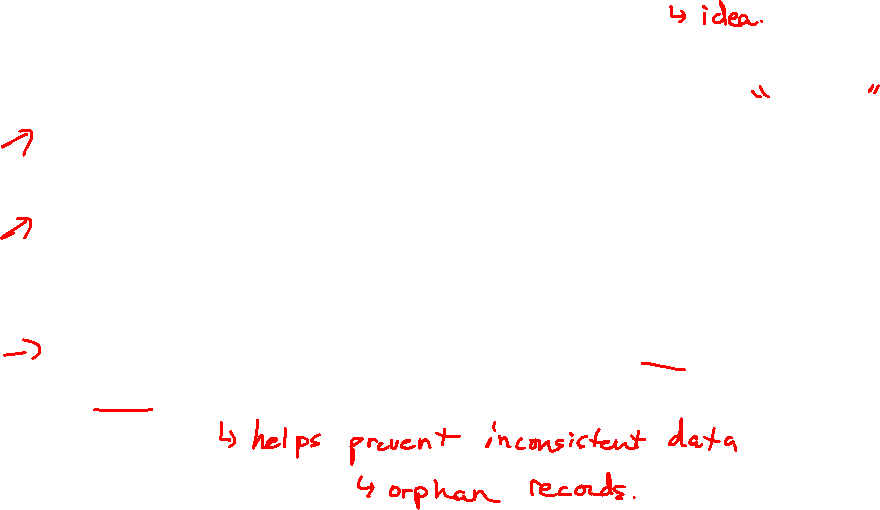 ↳ idea.
" "
↳ helps prevent inconsistent data
↳ orphan records.